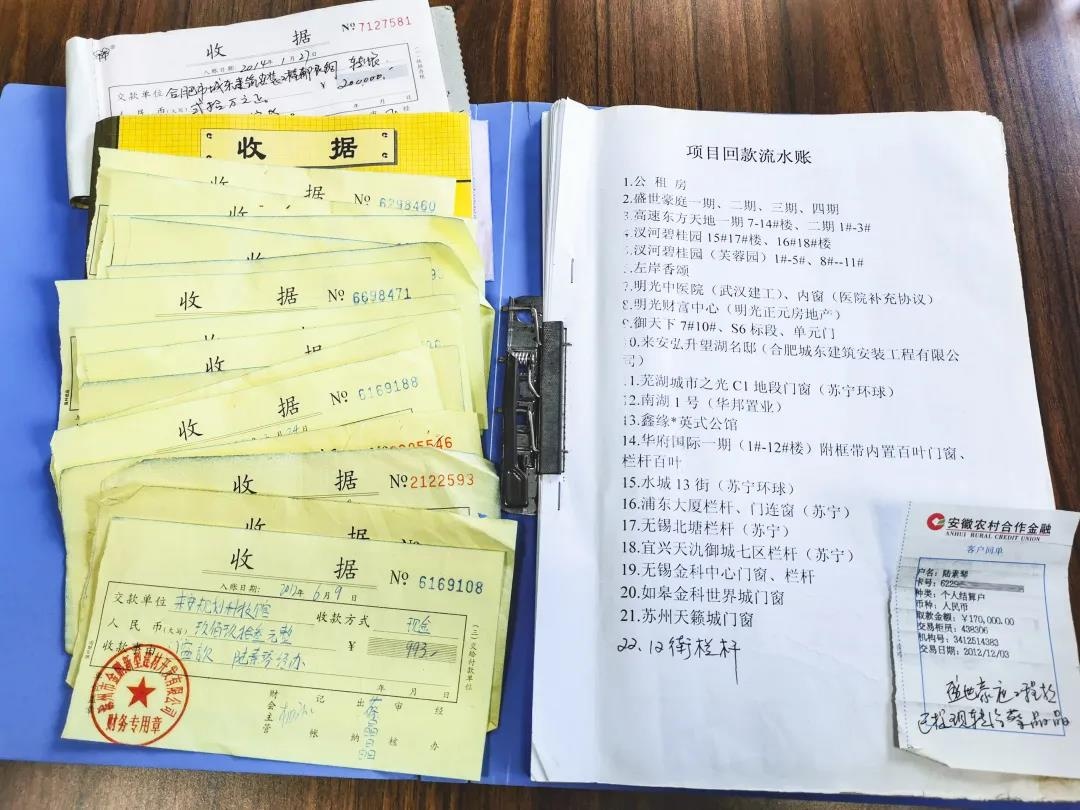 收 据
№ 7127581
入账日期: 2014年1月27日
交款单位 合肥市城东建筑安装工程有限公司 转账
¥200,000.
人民币(大写) 贰拾万元正
收 据
收 据
№ 6298460
收 据
收 据 № 6698471
收 据
收 据 № 6169188
5546
收 据 № 2122593
收 据
收 据 № 6169108
入账日期: 2017年6月9日
交款单位
收款方式 现金
人民币(大写) 玖佰玖拾叁元整
¥ 993.
收款事由
陆素琴经办
年 月 日
财会主管 记帐 出纳 审核 经办
(三)交给付款单位
财务专用章
项目回款流水账
1.公 租 房
2.盛世豪庭一期、二期、三期、四期
3.高速东方天地一期 7-14#楼、二期 1#-3#
汊河碧桂园 15#17#楼、16#18#楼
汊河碧桂园（芙蓉园）1#-5#、8#--11#
左岸香颂
7.明光中医院（武汉建工）、内窗（医院补充协议）
8.明光财富中心（明光正元房地产）
9.御天下 7#10#、S6 标段、单元门
10.来安弘升望湖名邸（合肥城东建筑安装工程有限公
司）
11.芜湖城市之光 C1 地段门窗（苏宁环球）
12.南湖 1 号（华邦置业）
13.鑫缘*英式公馆
14.华府国际一期（1#-12#楼）附框带内置百叶门窗、
栏杆百叶
15.水城 13 街（苏宁环球）
16.浦东大厦栏杆、门连窗（苏宁）
17.无锡北塘栏杆（苏宁）
18.宜兴天氿御城七区栏杆（苏宁）
19.无锡金科中心门窗、栏杆
20.如皋金科世界城门窗
21.苏州天籁城门窗
22. 12街栏杆
安徽农村合作金融
ANHUI RURAL CREDIT UNION
客户回单
户名: 陆素琴
卡号: 6229
种类: 个人结算户
币种: 人民币
取款金额: ¥170,000.00
交易柜员: 438306
机构号: 3412514383
交易日期: 2012/12/03